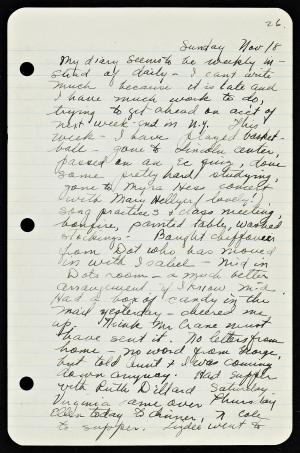 26.
Sunday Nov 18
My diary seems to be weekly in-
stead of daily - I can't write
much because it is late and
I have much work to do,
trying to get ahead on acct of
next week-end in N.Y. This
week - I have played basket-
ball - gone to Lincoln Center,
passed on an Ec quiz, done
some pretty hard studying,
gone to Myra Hess concert
with Mary Hellyer (lovely!)
song practices & class meeting,
bonfire, painted table, washed
stockings. Bought cheffoneer
from Dot who has moved
in with Isabel - Mid in
Dots room - a much better
arrangement, if I know M.D.
Had a box of candy in the
mail yesterday - cheered me
up. Think Mr Crane must
have sent it. No letters from
home - no word from George,
but told Aunt I was coming
down anyway. Had supper
with Ruth Dillard Saturday
Virginia came over Thursday
Ellen today to dinner, N Cole
to supper. Lydia went to